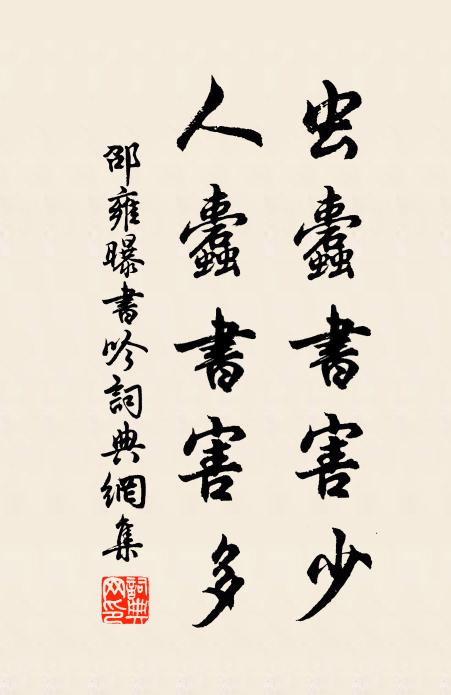 虫蠹書害少
人蠹書害多
邵雍曝書吟詞典網集
詞典网印